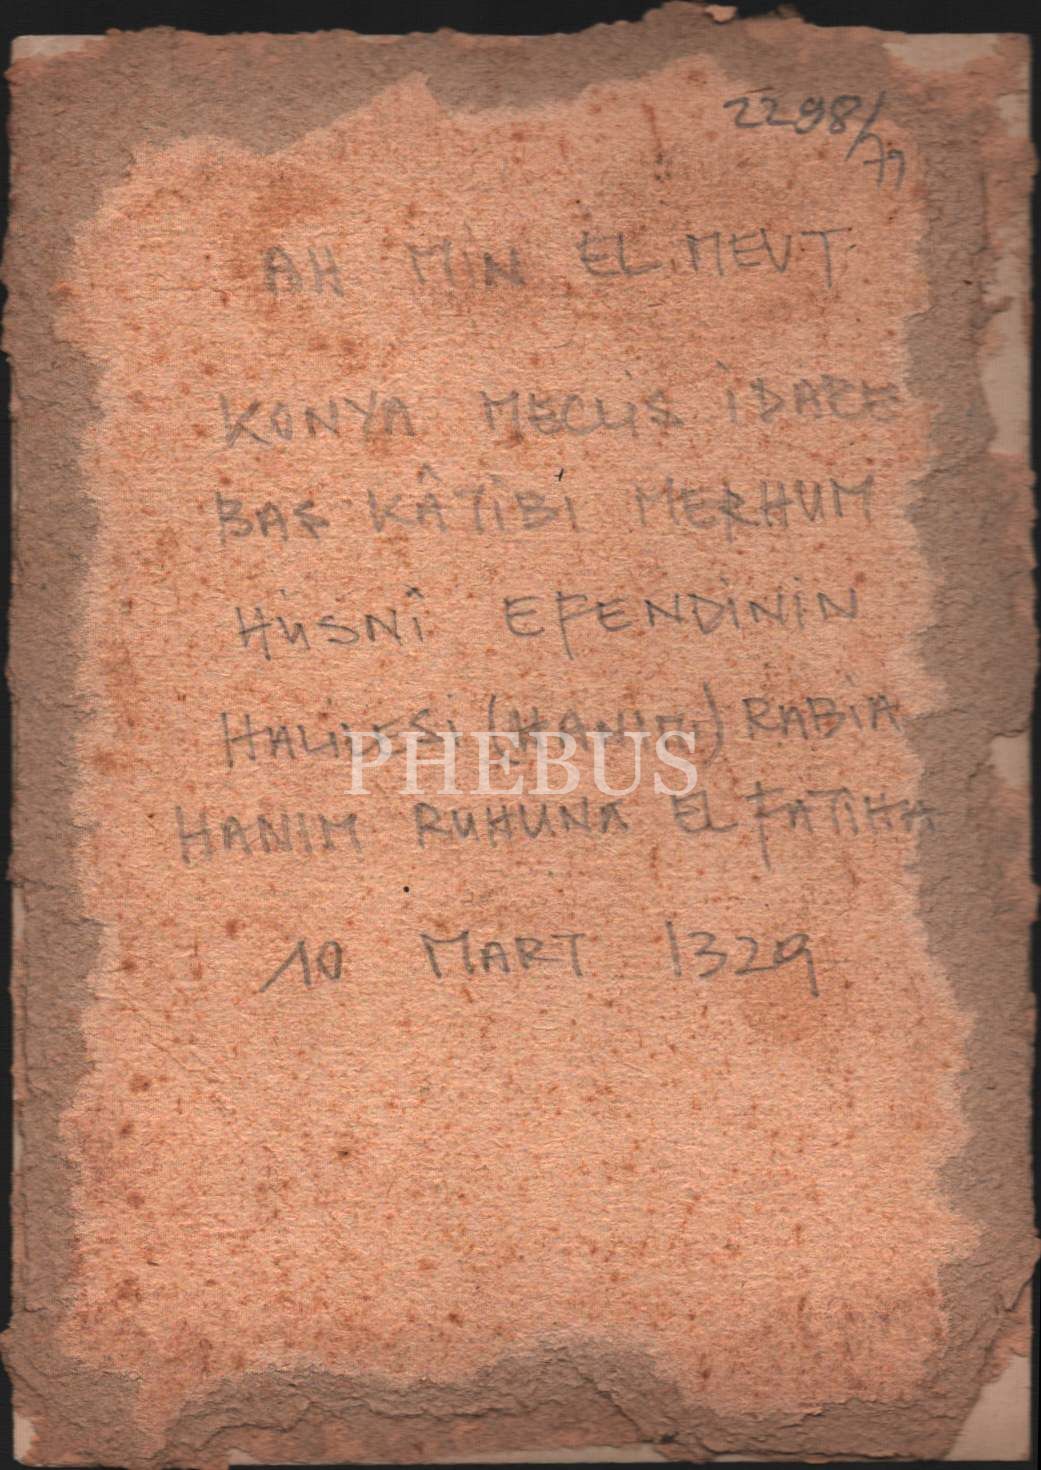 2298/77
AH MİN EL MEVT
KONYA MECLİS İDARE
BAŞ KÂTİBİ MERHUM
HÜSNÎ EFENDİNİN
HALİDESİ (HANIM) RABİA
HANIM RUHUNA EL FATİHA
10 MART 1329
PHEBUS